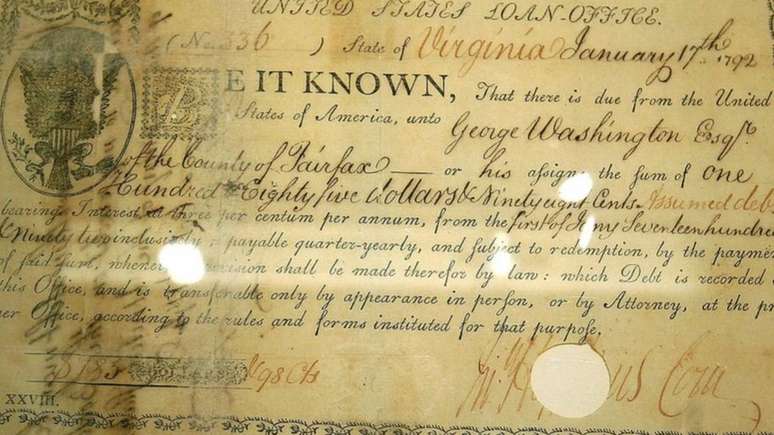 UNITED STATES LOAN-OFFICE.
(No. 336 ) State of Virginia January 17th 1792
BE IT KNOWN, That there is due from the United
States of America, unto George Washington Esqr.
of the County of Fairfax — or his assigns the sum of one
Hundred & Eighty five dollars & Ninety eight Cents Assumed deb
bearing Interest at three per centum per annum, from the first of Jany Seventeen hundred
& Ninety two inclusively payable quarter-yearly, and subject to redemption, by the paymen
of said sum, whenever provision shall be made therefor by law: which Debt is recorded
this Office, and is transferable only by appearance in person, or by Attorney, at the pr
per Office, according to the rules and forms instituted for that purpose.
D 185 DOLLARS 98 Cts
XXVIII.